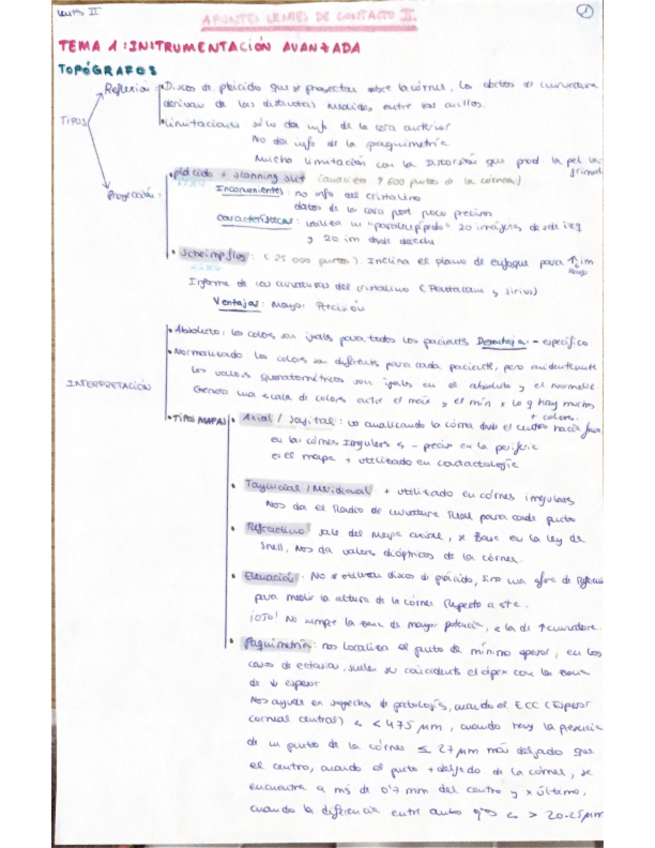 Lents II
1
APUNTES LENTES DE CONTACTO II.
TEMA 1: INSTRUMENTACIÓN AVANZADA
TOPÓGRAFOS
TIPOS
Reflexion: • Discos de plácido que se proyectan sobre la córnea, los datos de curvatura
derivan de las distancias medidas entre los anillos.
• Limitaciones: sólo da info de la cara anterior
No da info de la paquimetría
Mucha limitación con la Distorsión que prod. la pel. lagrimal
Proyección:
• plácido + scanning slit (analiza 9 600 puntos de la córnea)
Inconvenientes: no info del cristalino
datos de la cara post poco precisos
Características: realiza un "paralelepípedo" 20 imágenes desde izq
y 20 im desde derecha
• Scheimpflug: (25 000 puntos). Inclina el plano de enfoque para ↑ im
Informa de las curvaturas del cristalino (Pentacam y Sirius)
Ventajas: Mayor Precisión
INTERPRETACIÓN
• Absoluto: los colores son iguales para todos los pacientes Desventajas: - específico
• Normalizado los colores son diferents para cada paciente, pero evidentemente
los valores queratométricos son iguales en el absoluto y el normaliz.
Genera una escala de colores entre el máx y el mín x lo q hay muchos
+ colores.
• TIPOS MAPAS
• Axial / Sagital: va analizando la córnea desde el centro hacia fuera
en las córneas Irregulares es - preciso en la periferia
es el mapa + utilizado en contactología
• Tangencial / Meridional + utilizado en córneas irregulares
Nos da el Radio de curvatura Real para cada punto
• Refractivo sale del mapa axial, se Basa en la ley de
Snell, Nos da valores dióptricos de la córnea.
• Elevación: No se utilizan discos de plácido, sino una esfera de Referencia
para medir la altura de la córnea Respecto a ésta.
¡OJO! No siempre la zona de mayor potencia, es la de ↑ curvatura.
• Paquimetría: nos localiza el punto de mínimo espesor, en los
casos de ectasias, suelen ser coincidents el ápex con la zona
de ↓ espesor
Nos ayuda en sospechas de patología, cuando el ECC (Espesor
corneal central) es < 475 μm, cuando hay la presencia
de un punto de la córnea ≤ 27 μm más delgado que
el centro, cuando el punto + delgado de la córnea, se
encuentra a más de 0'7 mm del centro y x último,
cuando la diferencia entre ambos ojos es > 20-25 μm